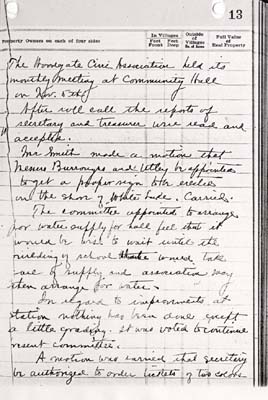 13
Property Owners on each of four sides
In Villages
Outside of Villages
Full Value of Real Property
Feet Front
Feet Deep
No. of Acres
The Woodgate Civic Association held its
monthly meeting at Community Hall
on Nov. 5th
After roll call the reports of
secretary and treasurer were read and
accepted.
Mr Smith made a motion that
Messrs Burroughs and Utley be appointed
to get a proper sign to be erected
on the shore of White Lake. Carried.
The committee appointed to arrange
for water supply for hall feel that it
would be wise to wait until the
building of school would take
care of supply and association may
then arrange for water.
In regard to improvements at
station nothing has been done except
a little grading. It was voted to continue
present committee.
A motion was carried that secretary
be authorized to order tickets of two colors